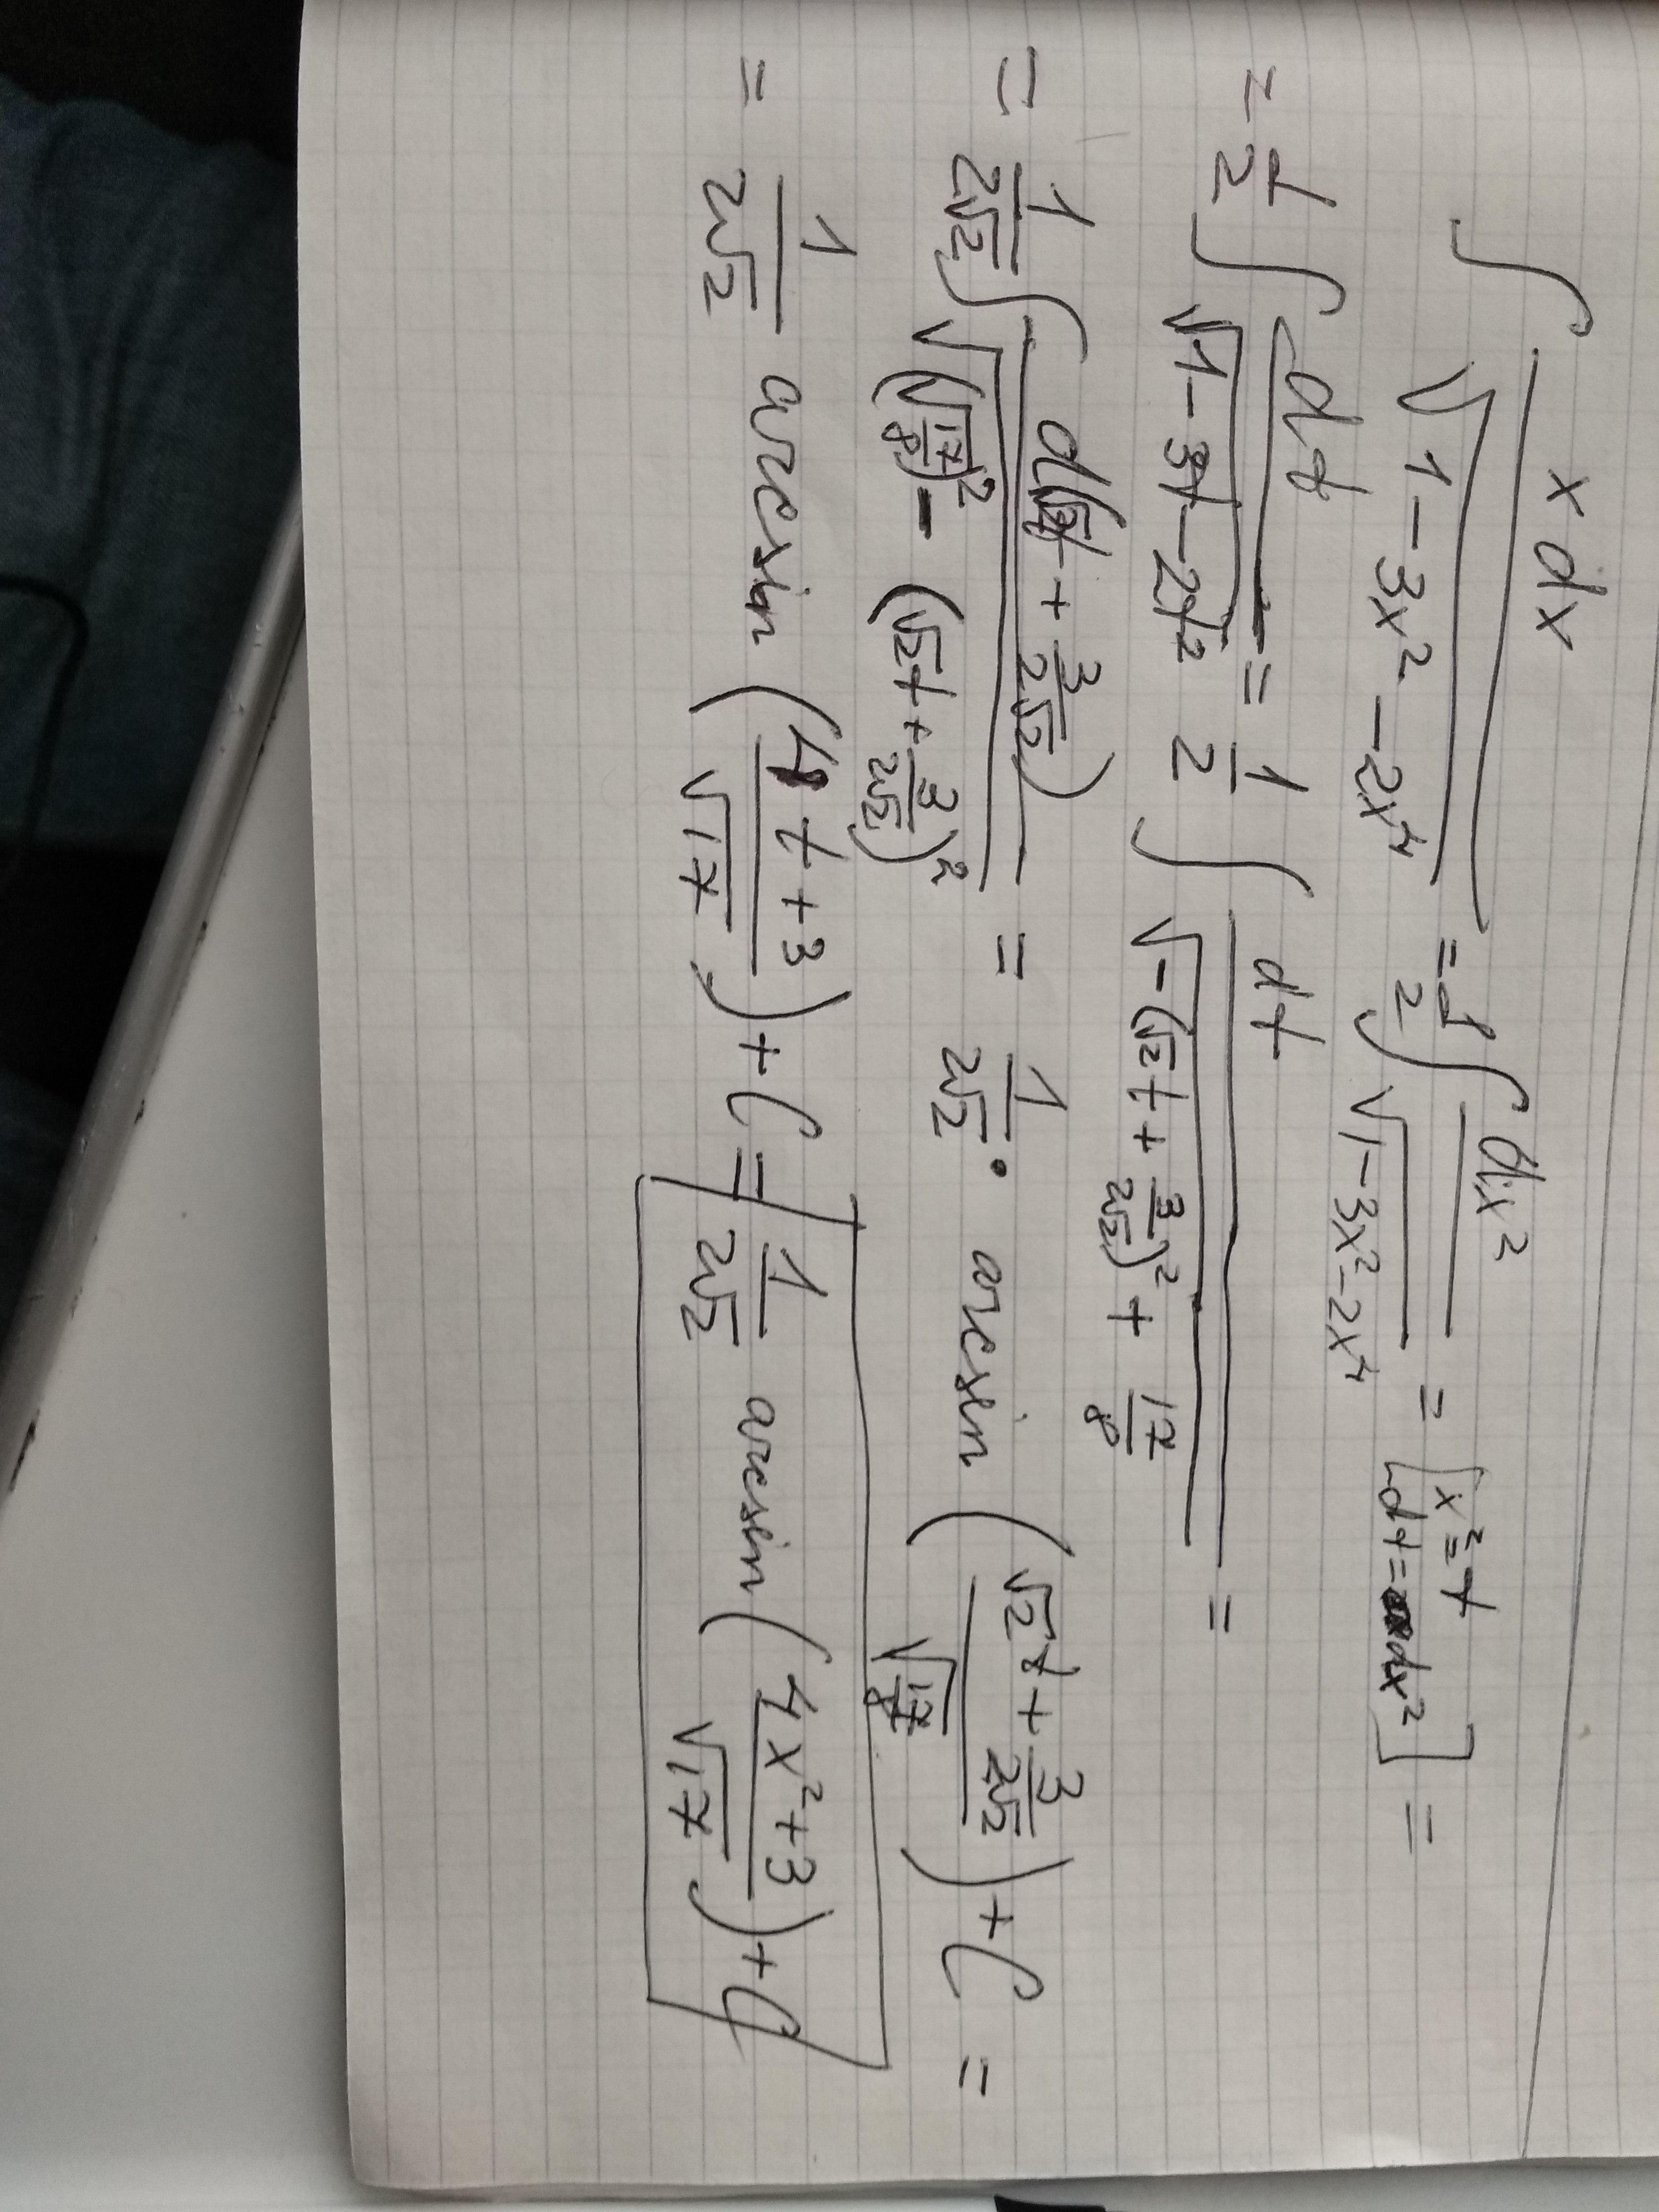 ∫ x dx / √(1 - 3x² - 2x⁴) = 1/2 ∫ dx² / √(1 - 3x² - 2x⁴) = [x² = t dt = dx²] =
= 1/2 ∫ dt / √(1 - 3t - 2t²) = 1/2 ∫ dt / √(-(√2 t + 3/(2√2))² + 17/8) =
= 1/(2√2) ∫ d(√2t + 3/(2√2)) / √((√(17/8))² - (√2t + 3/(2√2))²) = 1/(2√2) · arcsin ((√2 t + 3/(2√2)) / √(17/8)) + C =
= 1/(2√2) arcsin ((4t + 3) / √17) + C = 1/(2√2) arcsin ((4x² + 3) / √17) + C